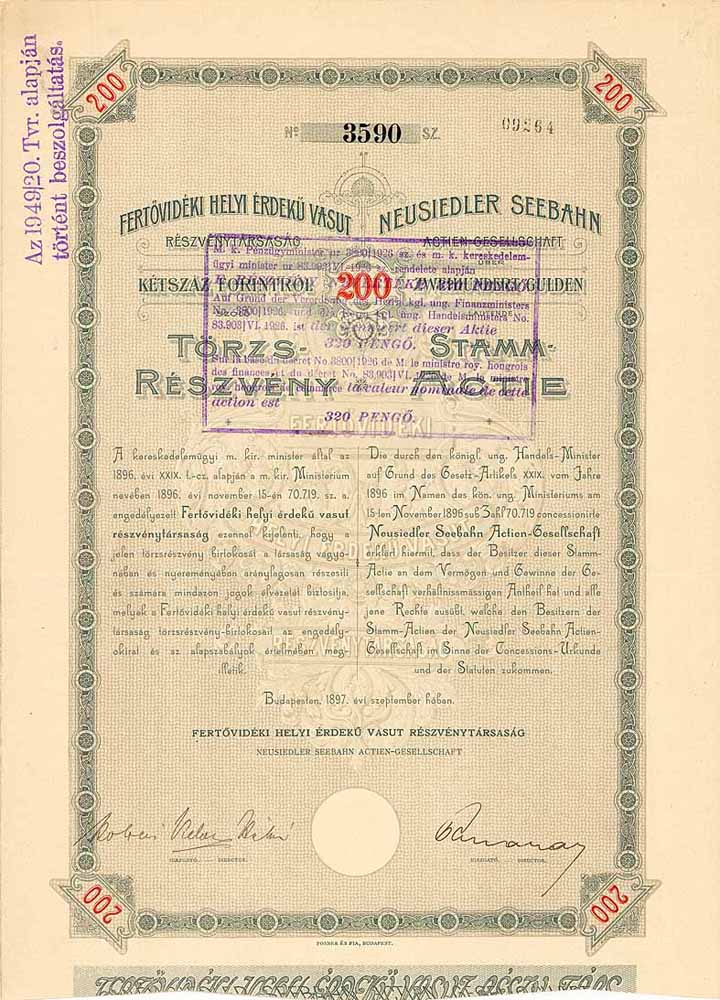 Az 1949|20. Tvr. alapján
történt beszolgáltatás.
200
200
No 3590 SZ.
09264
FERTŐVIDÉKI HELYI ÉRDEKŰ VASUT
RÉSZVÉNYTÁRSASÁG
NEUSIEDLER SEEBAHN
ACTIEN-GESELLSCHAFT
ÜBER
KÉTSZÁZ FORINTRÓL
200
ZWEIHUNDERT GULDEN
M. k. Pénzügyminister nr 3800|1926 sz. és m. k. kereskedelem-
ügyi minister nr 83.903|VI-1926 sz. rendelete alapján
Auf Grund der Verordn. des kgl. ung. Finanzministers
No. 3800|1926. und des kgl. ung. Handelsministers No.
83.903|VI. 1926. ist der Nennwert dieser Aktie
320 PENGŐ.
Sur la base du décret No 3800|1926 de M. le ministre roy. hongrois
des finances et du décret No 83,903|VI. de M. le ministre
roy. hongrois de commerce la valeur nominale de cette
action est
320 PENGŐ.
TÖRZS-
RÉSZVÉNY
STAMM-
ACTIE
FERTŐVIDÉKI
HELYI ÉRDEKŰ
RÉSZVÉNYTÁRSASÁG
A kereskedelemügyi m. kir. minister által az
1896. évi XXIX. t.-cz. alapján a m. kir. Ministerium
nevében 1896. évi november 15-én 70.719. sz. a.
engedélyezett Fertővidéki helyi érdekű vasut
részvénytársaság ezennel kijelenti, hogy a
jelen törzsrészvény birtokosát a társaság vagyo-
nában és nyereményében aránylagosan részesíti
és számára mindazon jogok élvezetét biztosítja,
melyek a Fertővidéki helyi érdekű vasut részvény-
társaság törzsrészvény-birtokosait az engedély-
okirat és az alapszabályok értelmében meg-
illetik.
Die durch den königl. ung. Handels-Minister
auf Grund des Gesetz-Artikels XXIX. vom Jahre
1896 im Namen des kön. ung. Ministeriums am
15-ten November 1896 sub Zahl 70.719 concessionirte
Neusiedler Seebahn Actien-Gesellschaft
erklärt hiermit, dass der Besitzer dieser Stamm-
Actie an dem Vermögen und Gewinne der Ge-
sellschaft verhältnissmässigen Antheil hat und alle
jene Rechte ausübt, welche den Besitzern der
Stamm-Actien der Neusiedler Seebahn Actien-
Gesellschaft im Sinne der Concessions-Urkunde
und der Statuten zukommen.
Budapesten, 1897. évi szeptember hóban.
FERTŐVIDÉKI HELYI ÉRDEKŰ VASUT RÉSZVÉNYTÁRSASÁG
NEUSIEDLER SEEBAHN ACTIEN-GESELLSCHAFT
IGAZGATÓ. DIRECTOR.
IGAZGATÓ. DIRECTOR.
200
200
POSNER ÉS FIA, BUDAPEST.
FERTŐVIDÉKI HELYI ÉRDEKŰ VASUT RÉSZV. TÁRS.